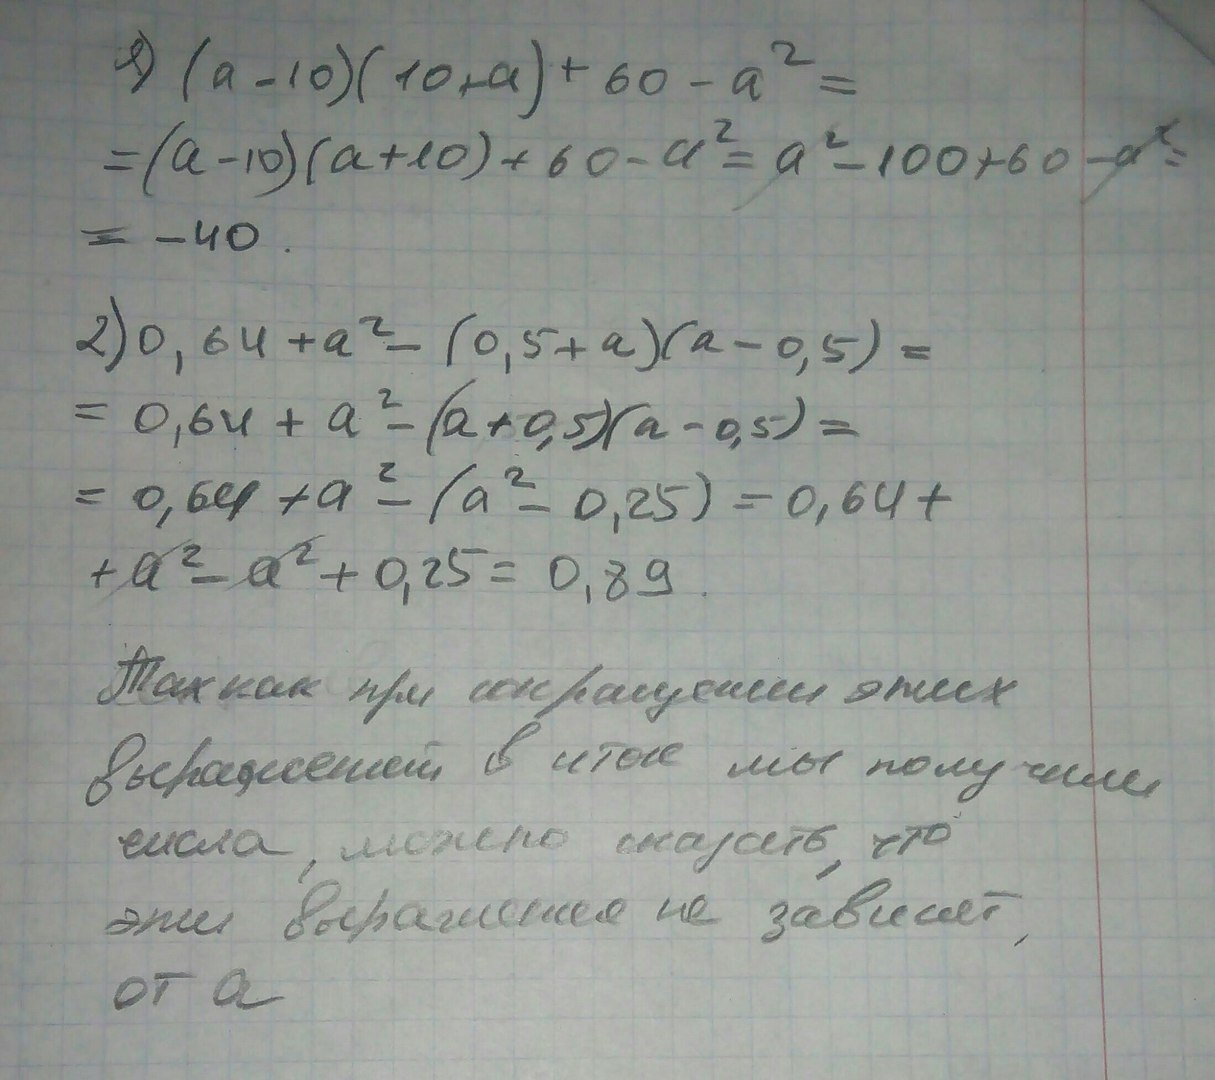 1) (a-10)(10+a)+60-a²=
=(a-10)(a+10)+60-a²=a²-100+60-a²=
=-40.
2) 0,64+a²-(0,5+a)(a-0,5)=
=0,64+a²-(a+0,5)(a-0,5)=
=0,64+a²-(a²-0,25)=0,64+
+a²-a²+0,25=0,89.
Так как при сокращении этих
выражений в итоге мы получили
числа, можно сказать, что
эти выражения не зависят,
от a